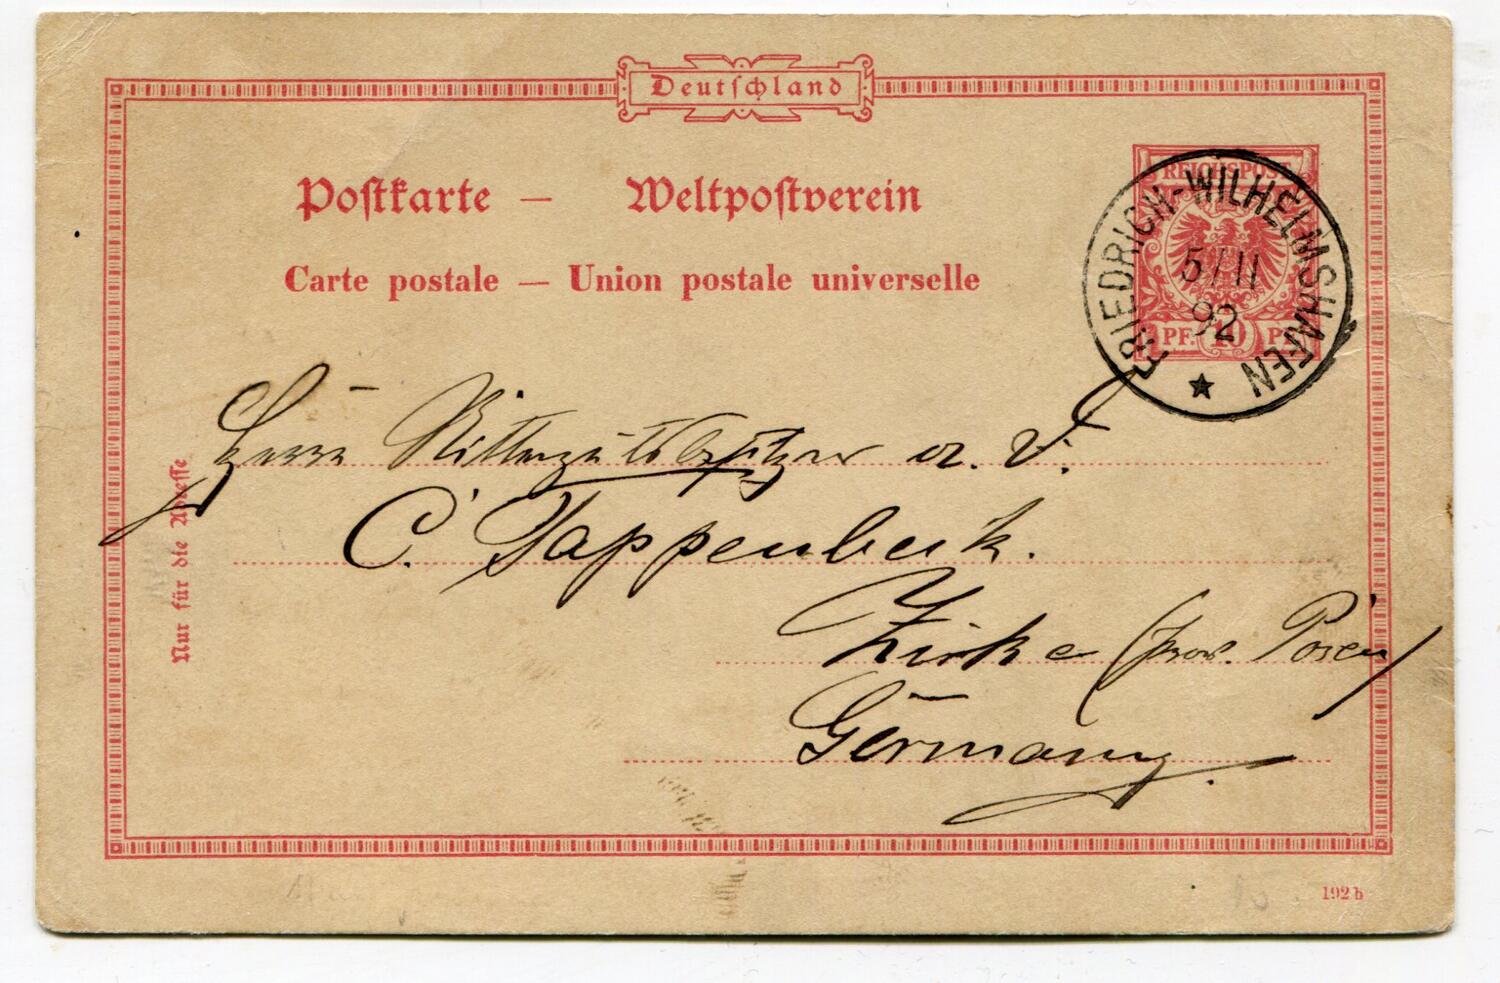 Deutschland
Postkarte — Weltpostverein
Carte postale — Union postale universelle
REICHSPOST
PF. 10 PF.
FRIEDRICH-WILHELMSHAFEN
5/11
92
Nur für die Adresse
Herrn Rittergutsbesitzer a. D.
C. Tappenbeck.
Zirke (prov. Posen)
Germany.
192 b